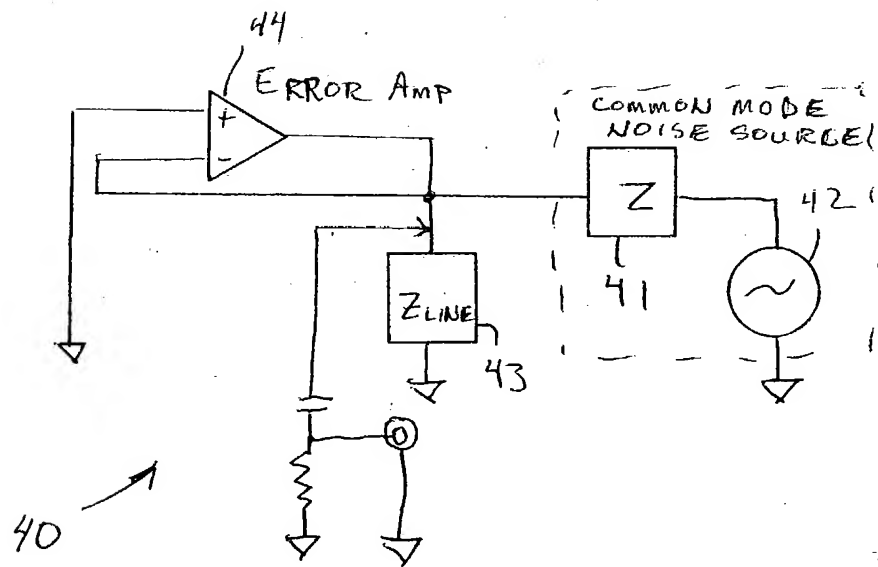 44
ERROR AMP
+
-
COMMON MODE
NOISE SOURCE
Z
42
41
ZLINE
43
40